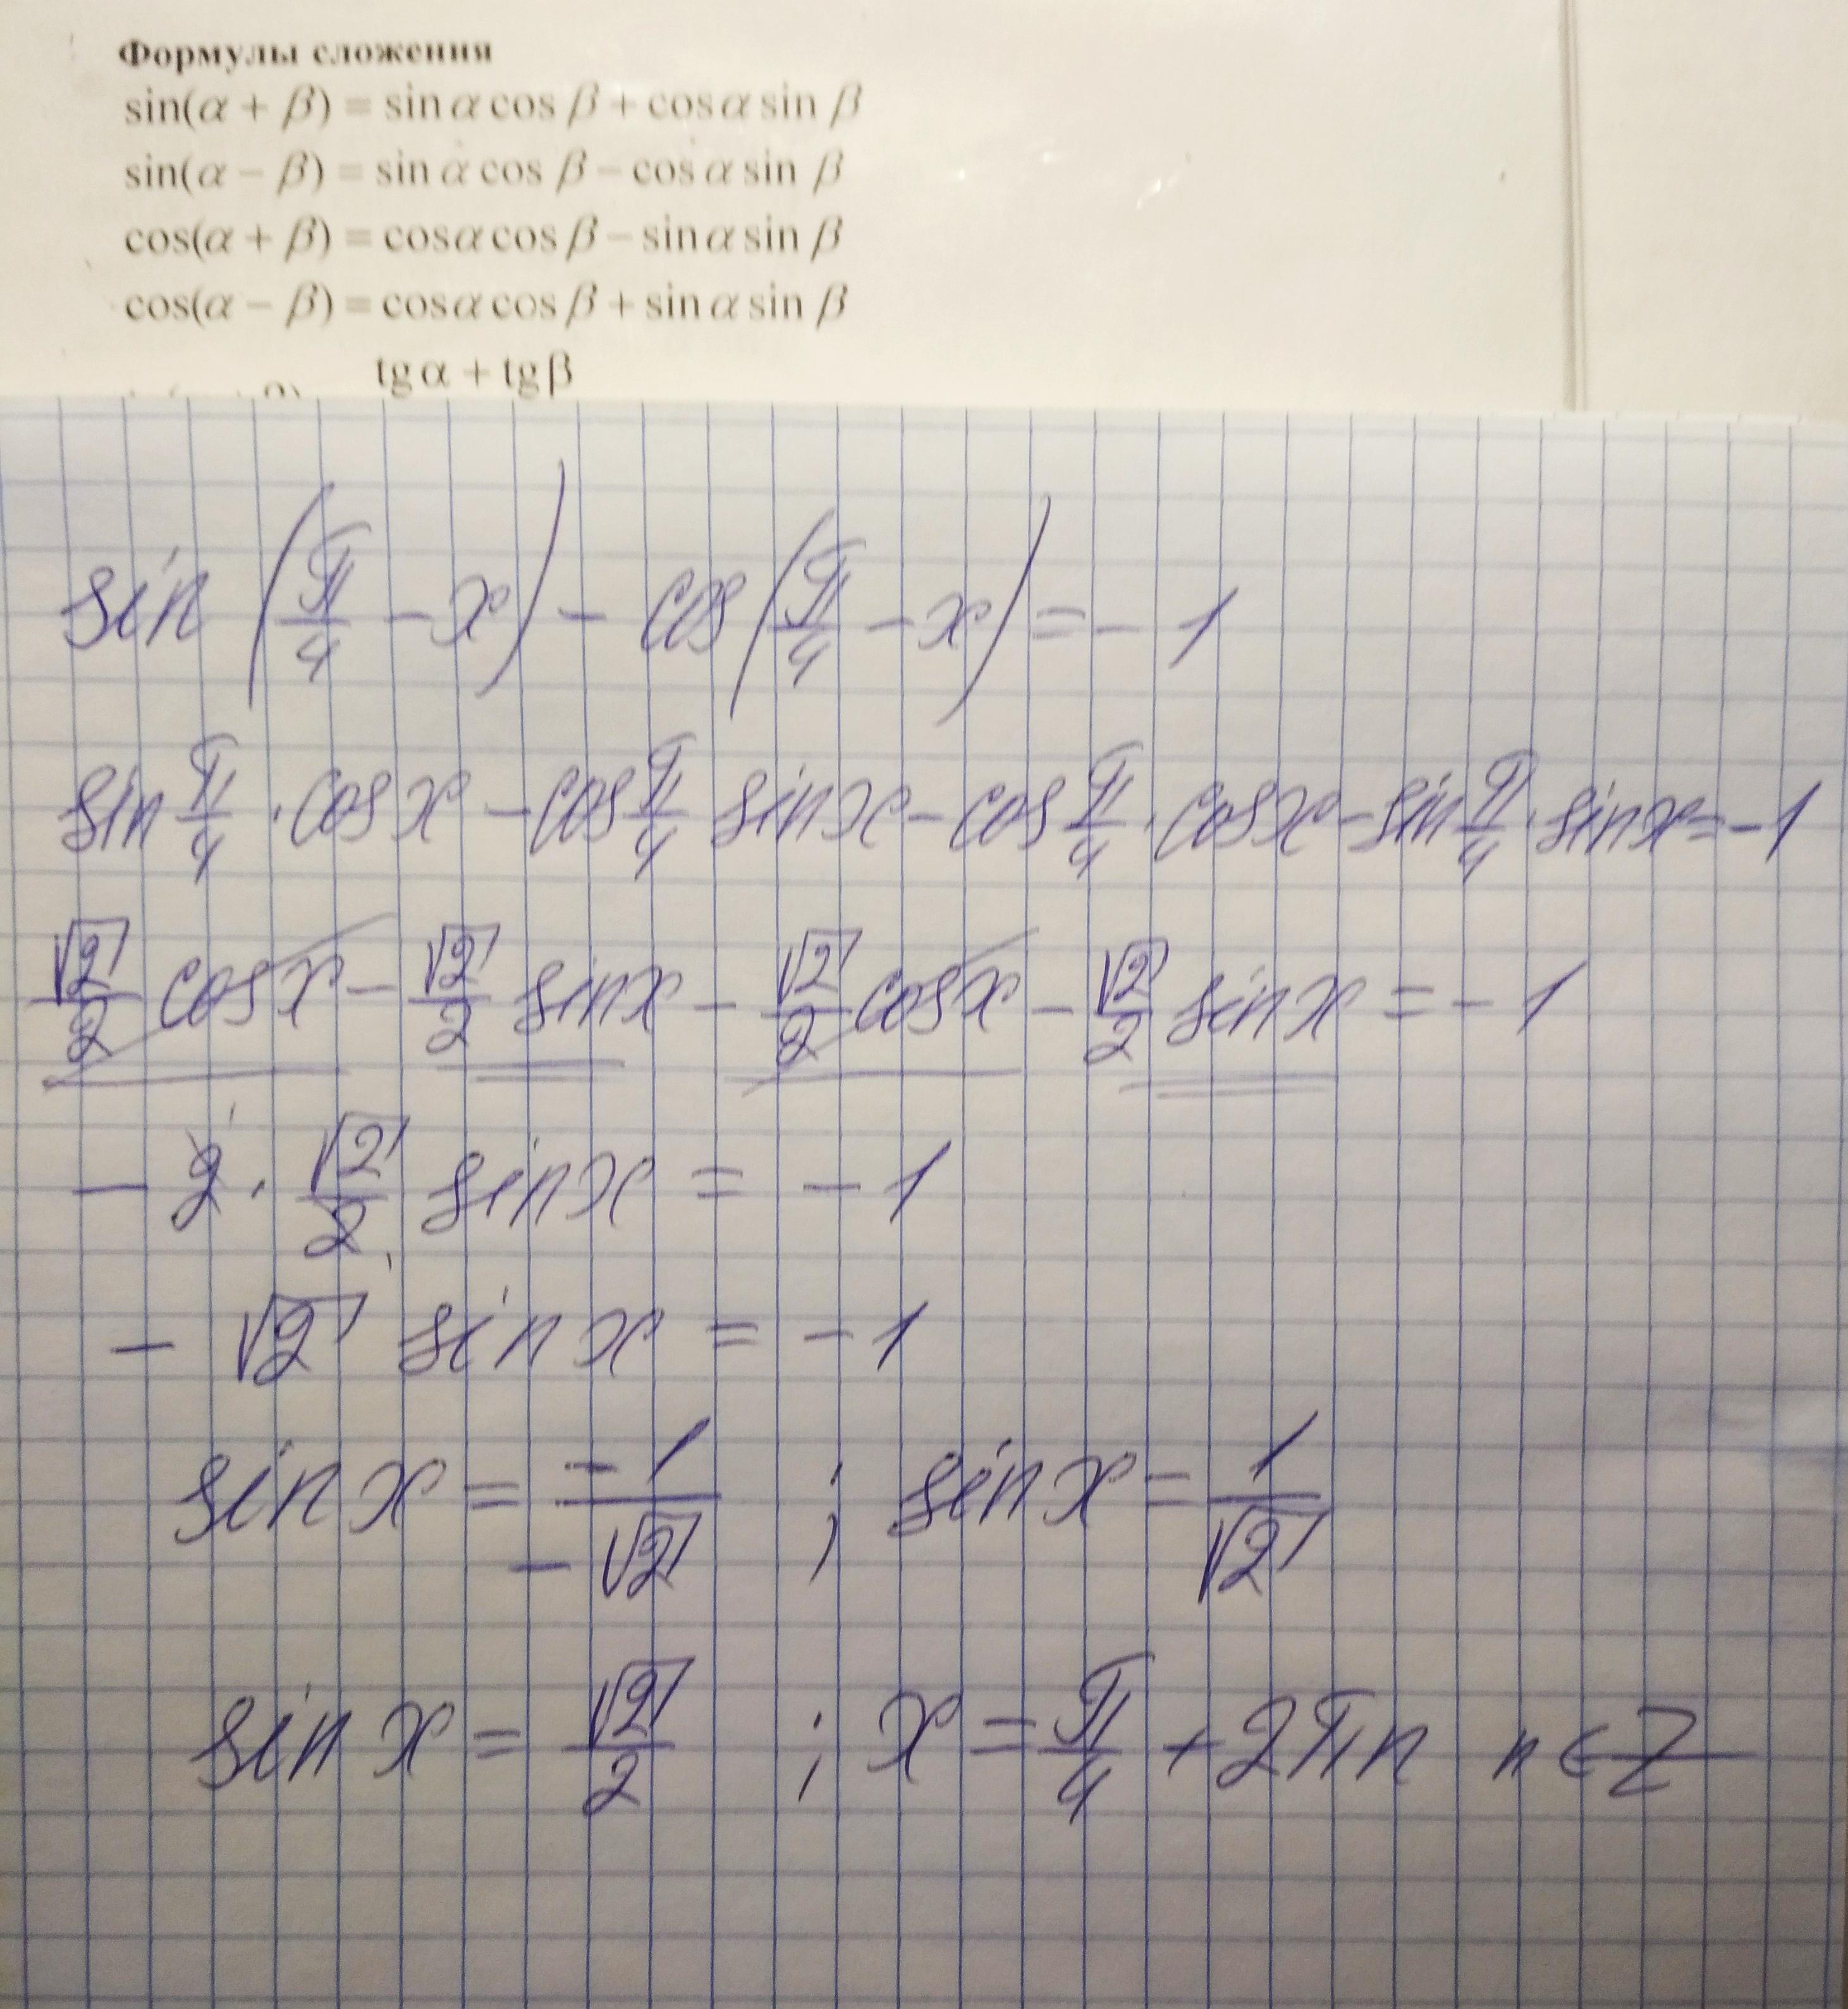 Формулы сложения
sin(α + β) = sin α cos β + cos α sin β
sin(α − β) = sin α cos β − cos α sin β
cos(α + β) = cos α cos β − sin α sin β
cos(α − β) = cos α cos β + sin α sin β
tg α + tg β
sin (π/4 − x) − cos (π/4 − x) = − 1
sin π/4 · cos x − cos π/4 sin x − cos π/4 · cos x − sin π/4 · sin x = −1
√2/2 cos x − √2/2 sin x − √2/2 cos x − √2/2 sin x = − 1
− 2 · √2/2 sin x = − 1
− √2 sin x = − 1
sin x = −1/−√2 ; sin x = 1/√2
sin x = √2/2 ; x = π/4 + 2πn n ∈ Z